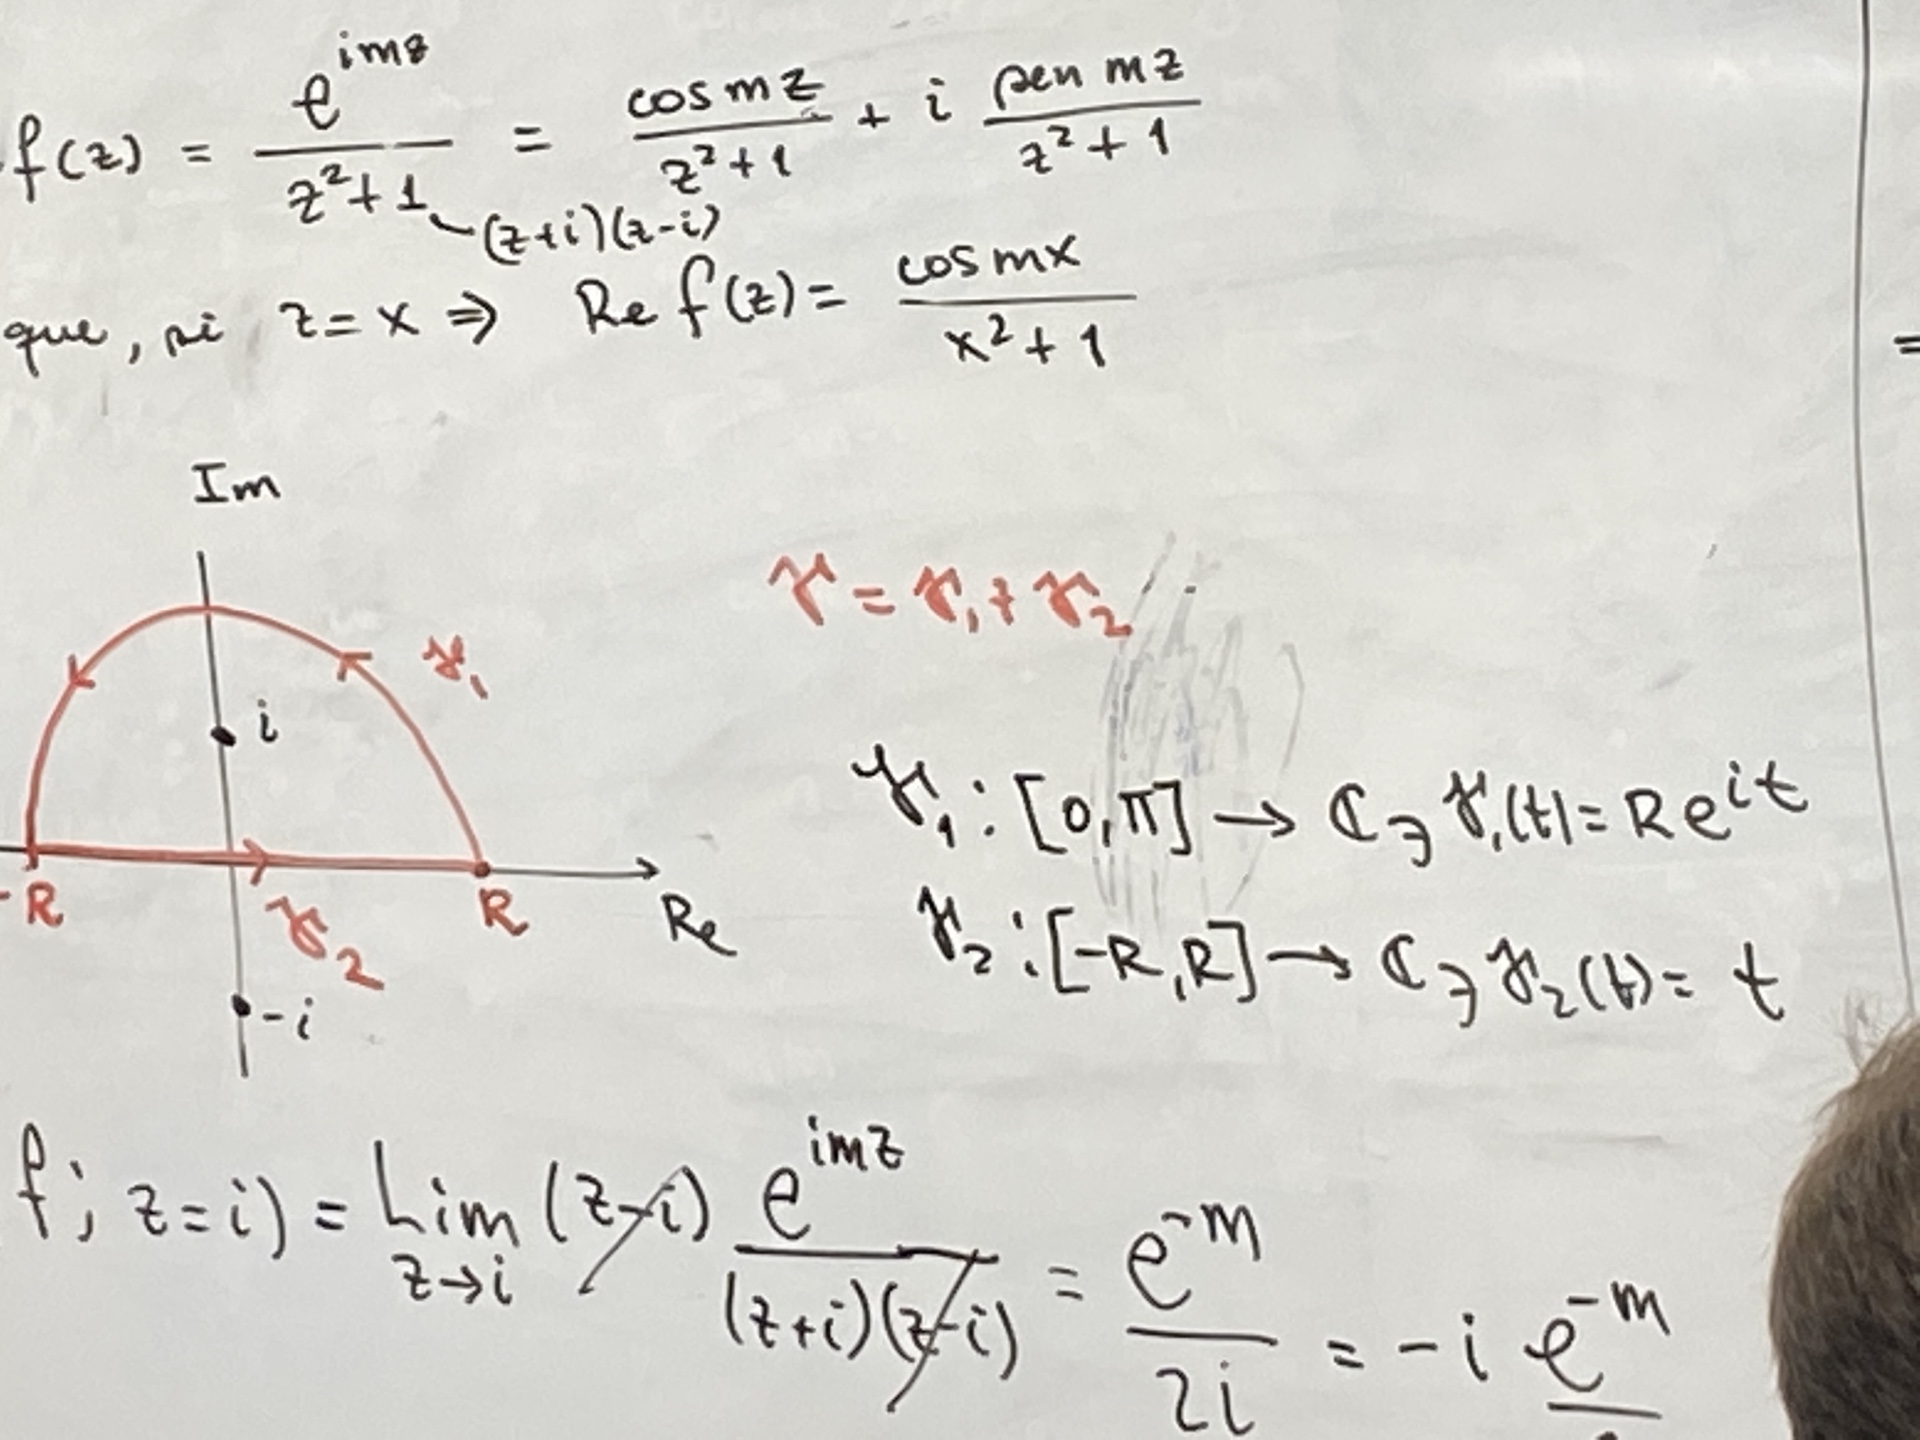 f(z) = e^{imz} / (z²+1) = cos mz / (z²+1) + i sen mz / (z²+1)
(z+i)(z-i)
que, si z = x ⇒ Re f(z) = cos mx / (x²+1)
Im
γ = γ₁ + γ₂
γ₁
i
γ₁ : [0,π] → ℂ ∋ γ₁(t) = Re^{it}
-R
γ₂
R
Re
γ₂ : [-R,R] → ℂ ∋ γ₂(t) = t
-i
f; z=i) = Lim_{z→i} (z-i) e^{imz} / ((z+i)(z-i)) = e^{-m} / 2i = -i e^{-m}
=